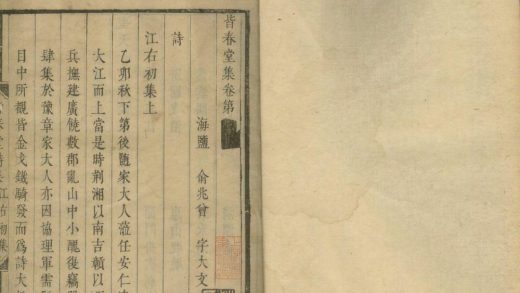 皆春堂集卷第
海鹽 俞兆曾 字大文
詩
江右初集上
乙卯秋下第後隨家大人蒞任安仁
大江而上當是時荊湘以南吉贛以
兵撫建廣饒數郡亂山中小醜後竊
肆集於豫章家大人亦因協理軍需
目中所觀皆金戈鐵騎發而爲詩大
春堂詩 江右初集